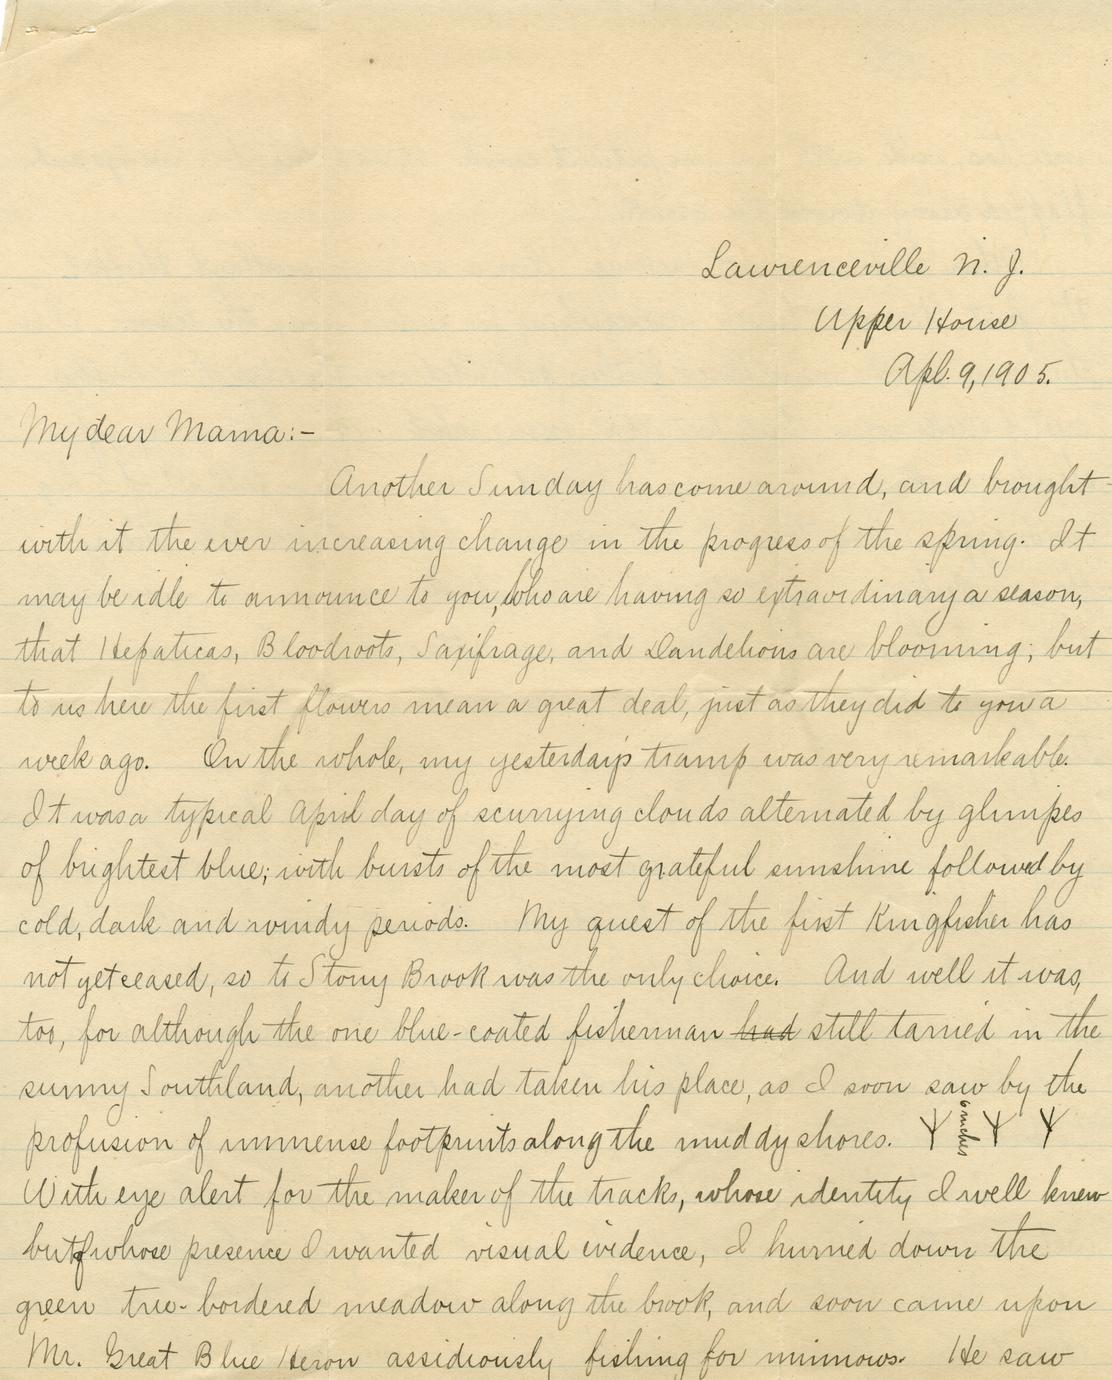 Lawrenceville N. J.
Upper House
Apl. 9, 1905.
My dear Mama:-
Another Sunday has come around, and brought
with it the ever increasing change in the progress of the spring. It
may be idle to announce to you, who are having so extraordinary a season,
that Hepaticas, Bloodroots, Saxifrage, and Dandelions are blooming; but
to us here the first flowers mean a great deal, just as they did to you a
week ago. On the whole, my yesterday's tramp was very remarkable.
It was a typical April day of scurrying clouds alternated by glimpes
of brightest blue; with bursts of the most grateful sunshine followed by
cold, dark and windy periods. My quest of the first Kingfisher has
not yet ceased, so to Stony Brook was the only choice. And well it was,
too, for although the one blue-coated fisherman had still tarried in the
sunny Southland, another had taken his place, as I soon saw by the
profusion of immense footprints along the muddy shores. 6 inches
With eye alert for the maker of the tracks, whose identity I well knew
but of whose presence I wanted visual evidence, I hurried down the
green tree-bordered meadow along the brook, and soon came upon
Mr. Great Blue Heron assidiously fishing for minnows. He saw